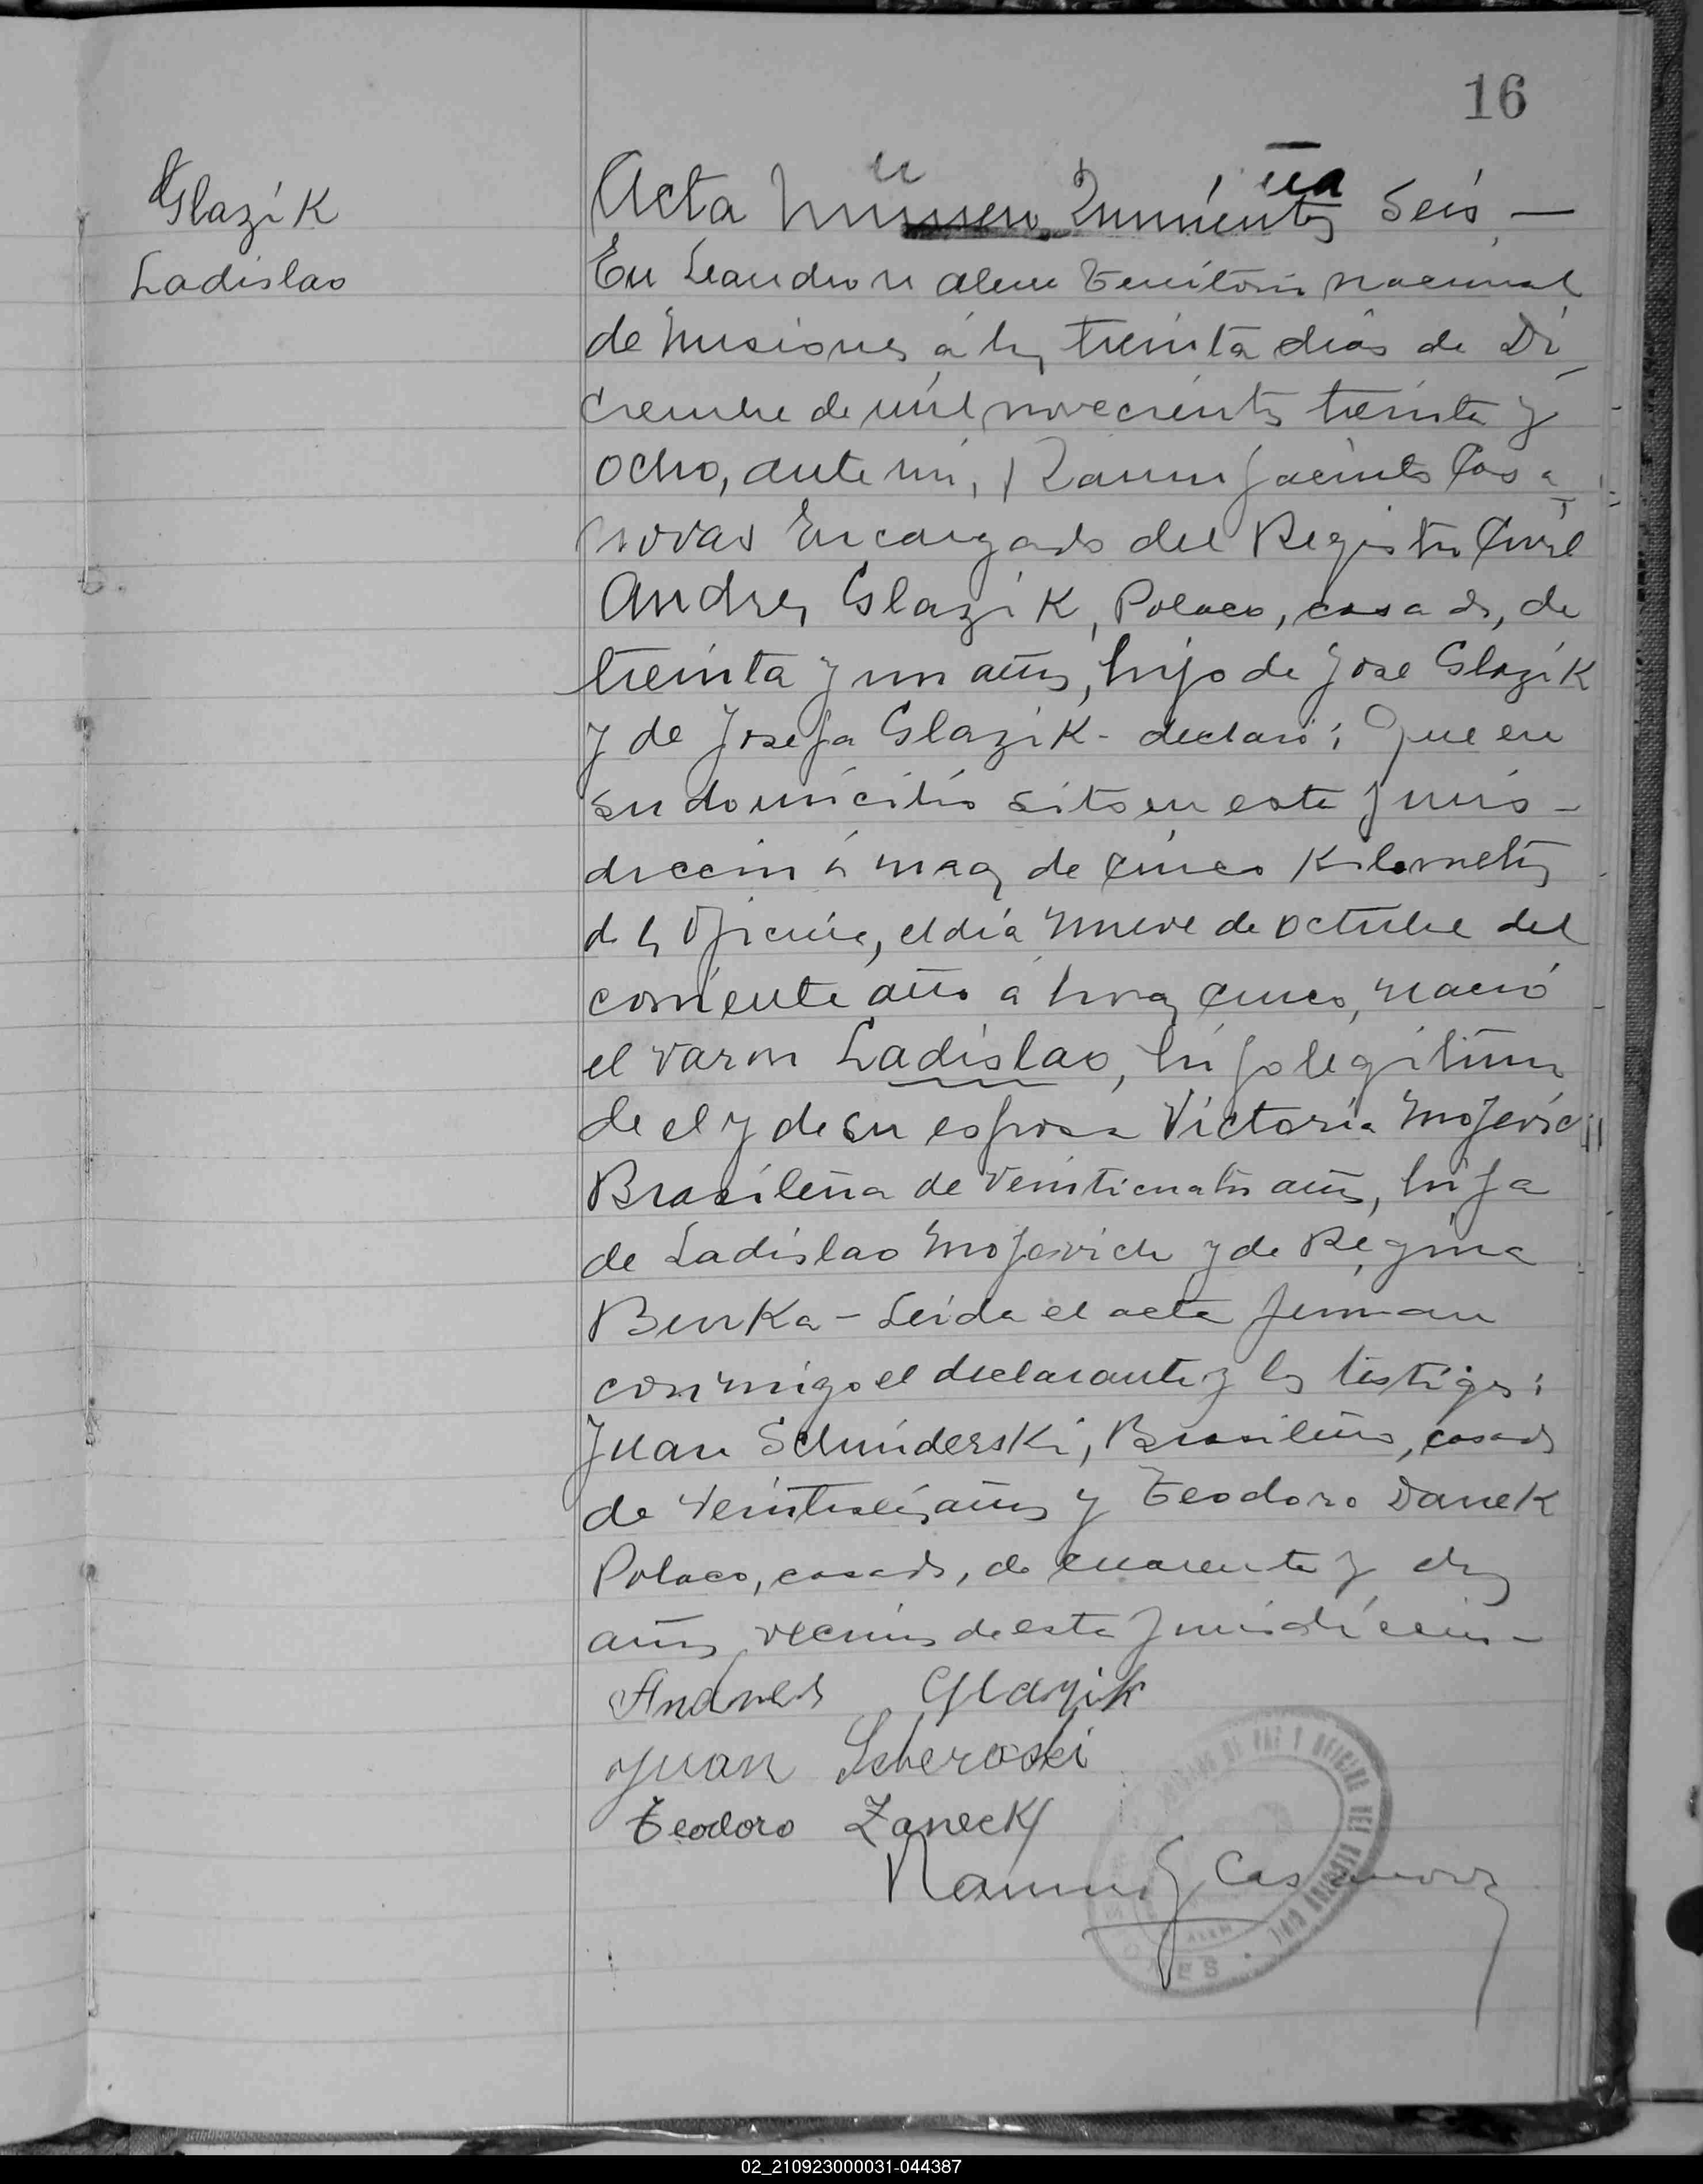 16
Glazik
Ladislao
Acta Número Quinientos Seis —
En Leandro N Alem Territorio Nacional
de Misiones á los treinta dias de Di
ciembre de mil novecientos treinta y
ocho, ante mi, Ramon Jacinto Casa
novas Encargado del Registro Civil
Andres Glazik, Polaco, casado, de
treinta y un años, hijo de Jose Glazik
y de Josefa Glazik - declaró: Que en
su domicilio sito en esta juris-
diccion á mas de cinco Kilometros
de la Oficina, el dia nueve de octubre del
corriente año á horas cinco, nació
el varon Ladislao, hijo legitimo
de el y de su esposa Victoria Mojevich
Brasileña de veinticuatro años, hija
de Ladislao Mojevich y de Regina
Benka - Leida el acta firman
conmigo el declarante y los testigos:
Juan Schniderski, Brasileño, casado
de veintiseis años y Teodoro Danek
Polaco, casado, de cuarenta y dos
años vecinos de esta jurisdiccion -
Andres Glazik
Juan Scheroski
Teodoro Zaneck
Ramon J Casanovas
JUZGADO DE PAZ Y OFICINA DEL REGISTRO CIVIL
ALEM
MISIONES
02_210923000031-044387